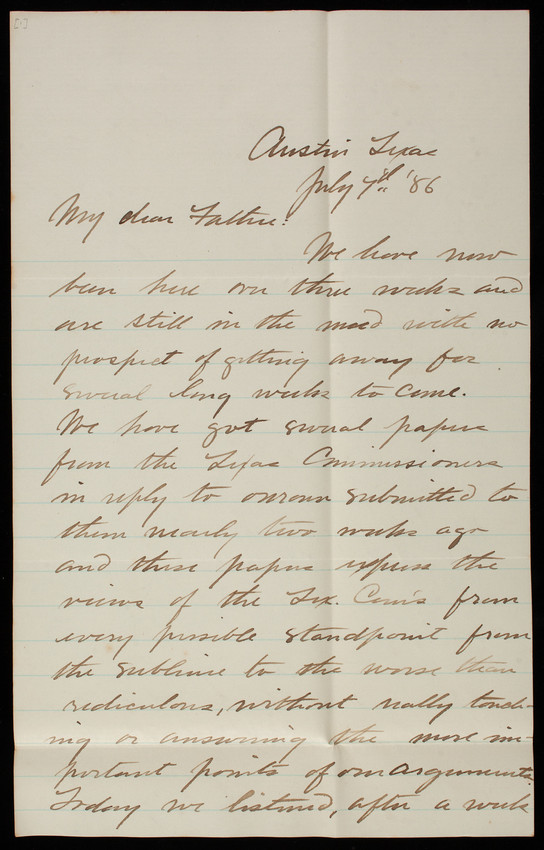 Austin Texas
July 7th '86
My dear Father:
We have now
been here over three weeks and
are still in the mud with no
prospect of getting away for
several long weeks to come.
We have got several papers
from the Texas Commissioners
in reply to our own submitted to
them nearly two weeks ago
and these papers express the
views of the Tex. Com's from
every possible standpoint from
the sublime to the worse than
ridiculous, without really touch-
ing or answering the more im-
portant points of our arguments.
Today we listened, after a week